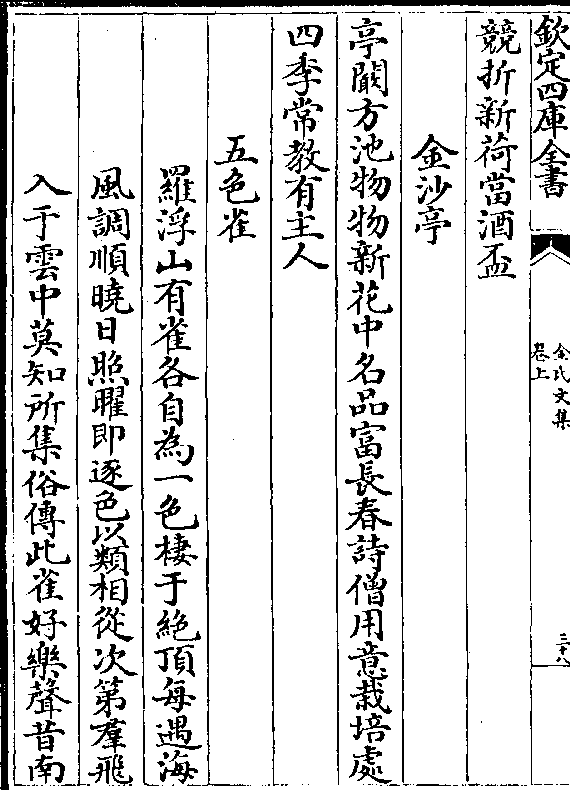 欽定四庫全書
金氏文集
卷上
三十八
競折新荷當酒盃
金沙亭
亭闞方池物物新花中名品富長春詩僧用意栽培處
四季常教有主人
五色雀
羅浮山有雀各自為一色棲于絶頂每遇海
風調順曉日照曜即逐色以類相從次第羣飛
入于雲中莫知所集俗傳此雀好樂聲昔南